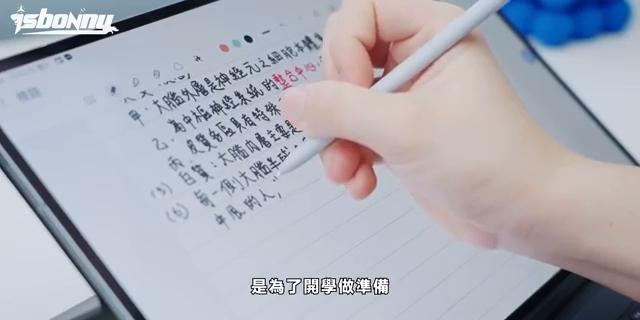 isbonny
標題
甲 大腦外層是神經元之細胞本體集
乙. 為中樞神經系統的整合中心,
丙 皮質各區具有特殊
(5) 白質:大腦內層主要是
(6) 每一側大腦半球
中風的人,
是為了開學做準備